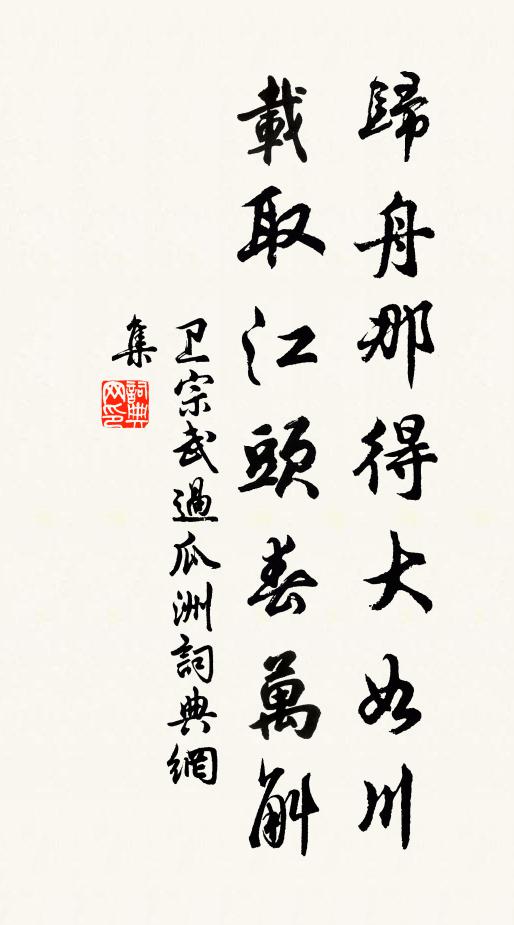 歸舟那得大如川
載取江頭春萬斛
卫宗武過瓜洲詞典網
集
詞典
网印